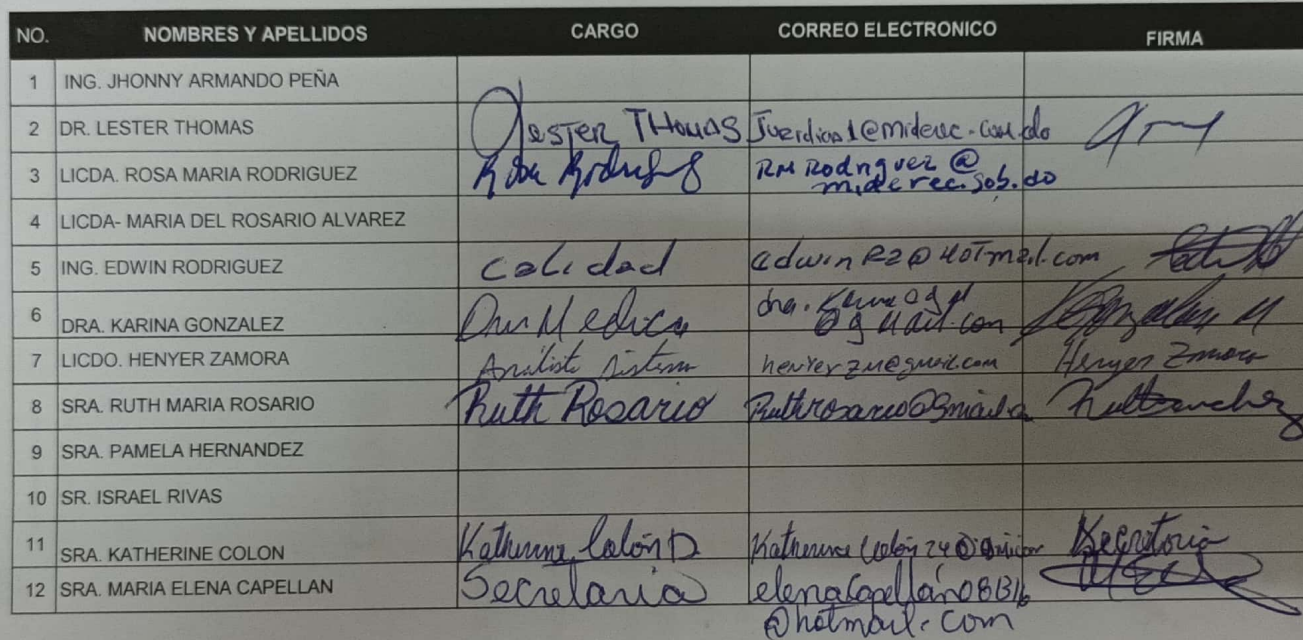 NO. NOMBRES Y APELLIDOS CARGO CORREO ELECTRONICO FIRMA
1 ING. JHONNY ARMANDO PEÑA
2 DR. LESTER THOMAS Lester THOMAS
3 LICDA. ROSA MARIA RODRIGUEZ Rosa Rodriguez RM Rodriguez @
miderec.gob.do
4 LICDA- MARIA DEL ROSARIO ALVAREZ
5 ING. EDWIN RODRIGUEZ Calidad edwinRZ@HOTmail.com
6 DRA. KARINA GONZALEZ Medica dra.
@gmail.com Gonzalez M
7 LICDO. HENYER ZAMORA Analista Sistema henyerzm@gmail.com Henyer Zamora
8 SRA. RUTH MARIA ROSARIO Ruth Rosario
9 SRA. PAMELA HERNANDEZ
10 SR. ISRAEL RIVAS
11 SRA. KATHERINE COLON Katherine Colón D Secretaria
12 SRA. MARIA ELENA CAPELLAN Secretaria
@hotmail.com